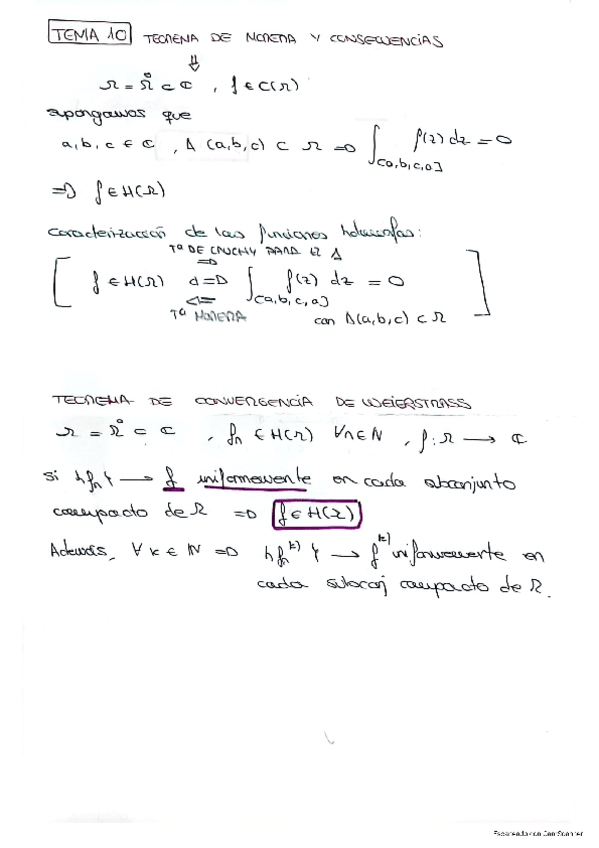 TEMA 10 TEOREMA DE MORERA Y CONSECUENCIAS
⇓
Ω = Ω̊ ⊂ ℂ , f ∈ C(Ω)
supongamos que
a, b, c ∈ ℂ , Δ (a,b,c) ⊂ Ω ⇒ ∫[a,b,c,a] f(z) dz = 0
⇒ f ∈ H(Ω)
Caracterización de las funciones holomorfas:
Tª DE CAUCHY PARA EL Δ
⇒
[ f ∈ H(Ω) ⇔ ∫[a,b,c,a] f(z) dz = 0 ]
⇐
Tª MORERA con Δ(a,b,c) ⊂ Ω
TEOREMA DE CONVERGENCIA DE WEIERSTRASS
Ω = Ω̊ ⊂ ℂ , fn ∈ H(Ω) ∀n∈ℕ , f: Ω → ℂ
si {fn} → f uniformemente en cada subconjunto
compacto de Ω ⇒ f ∈ H(Ω)
Además, ∀ k ∈ ℕ ⇒ {fn^(k)} → f^(k) uniformemente en
cada subconj compacto de Ω.
Escaneado con CamScanner